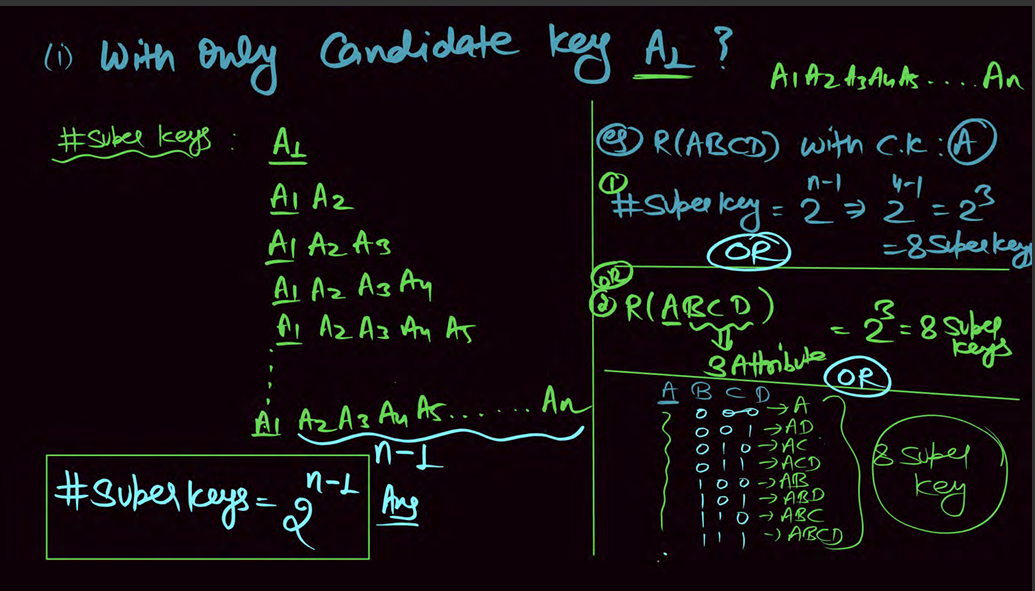 (i) With Only Candidate key A1 ?
A1 A2 A3 A4 A5 ..... An
#Super keys : A1
A1 A2
A1 A2 A3
A1 A2 A3 A4
A1 A2 A3 A4 A5
A1 A2 A3 A4 A5 ....... An
n-1
#Super keys = 2^n-1 Ans
eg R(ABCD) with C.K : A
① #Super key = 2^n-1 ⇒ 2^4-1 = 2^3
= 8 Super keys
OR
OR
② R(ABCD)
⇓
3 Attribute
= 2^3 = 8 Super keys
OR
A B C D
0 0 0 → A
0 0 1 → AD
0 1 0 → AC
0 1 1 → ACD
1 0 0 → AB
1 0 1 → ABD
1 1 0 → ABC
1 1 1 → ABCD
8 Super
key